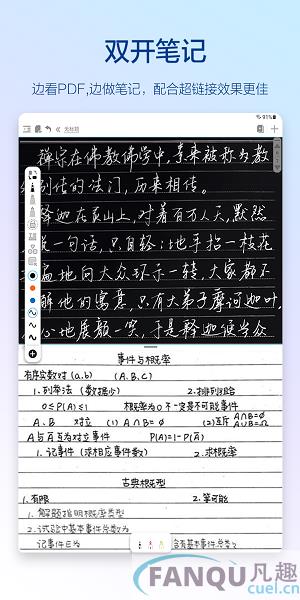 双开笔记
边看PDF,边做笔记，配合超链接效果更佳
91%
无标题
禅宗在佛教佛学中,素来被称为教
别传的法门,历来相传。
释迦在灵山上,对着百万人天,默然
一句话,只自轻地手拈一枝花
遍地向大众环示一转,大家都不
解他的寓意,只有大弟子摩诃迦叶,
心地展颜一笑,于是释迦便当众
事件与概率
有序实数对(a.b) (A.B.C)
1.列举法(数据少) 2.排列组合
0≤P(A)≤1 概率为0不一定是不可能事件
A、B 对立 (1)A∩B=∅ (2)互斥 A∩B=∅ A∪B=Ω
A与Ā互为对立事件 P(A)=1-P(Ā)
1.记事件(求相应事件数) 2.求概率
古典概型
1.有限 2.等可能
1.解题指明概率类型
2.试验中基本事件总数为
记事件E为 含有基本事件总数为
FANQU凡趣
cuel.cn